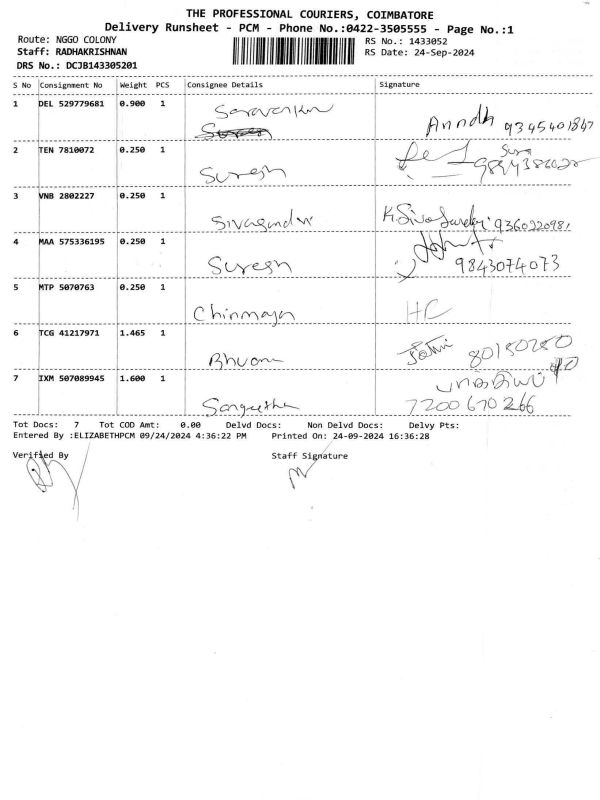 THE PROFESSIONAL COURIERS, COIMBATORE
Delivery Runsheet - PCM - Phone No.:0422-3505555 - Page No.:1
Route: NGGO COLONY RS No.: 1433052
Staff: RADHAKRISHNAN RS Date: 24-Sep-2024
DRS No.: DCJB143305201
S No Consignment No Weight PCS Consignee Details Signature
1 DEL 529779681 0.900 1 Saravankumar
Anndh 9345401847
2 TEN 7810072 0.250 1 Suresh
3 VNB 2802227 0.250 1 K. Siva 9360220981
4 MAA 575336195 0.250 1 Suresh 9843074073
5 MTP 5070763 0.250 1 Chinmaya HC
6 TCG 41217971 1.465 1 Bhuvana
7 IXM 507089945 1.600 1 Sangeetha 7200670266
Tot Docs: 7 Tot COD Amt: 0.00 Delvd Docs: Non Delvd Docs: Delvy Pts:
Entered By :ELIZABETHPCM 09/24/2024 4:36:22 PM Printed On: 24-09-2024 16:36:28
Verified By Staff Signature